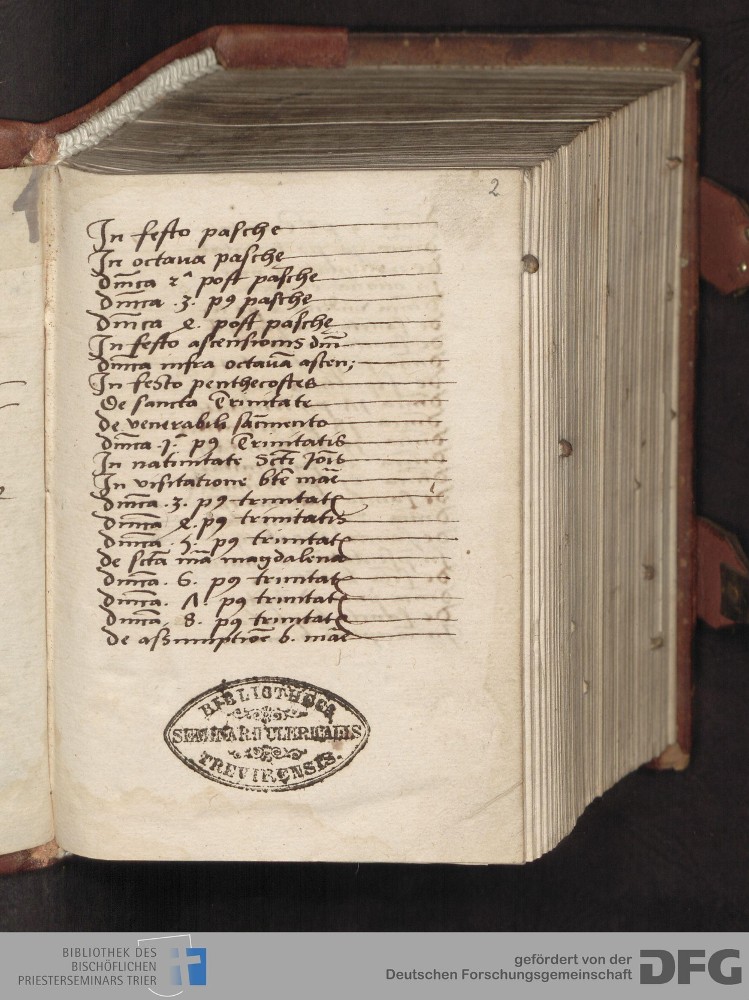 2
In festo pasche
In octaua pasche
dn̄ica 2ᵃ post pasche
dn̄ica .3. pꝰ pasche
dn̄ica 4. post pasche
In festo ascensionis dnī
dn̄ica infra octauā ascen;
In festo penthecostes
De sancta Trinitate
de venerabili sac̄mento
dn̄ica .j.ᵃ pꝰ Trinitatis
In natiuitate Sctī Joīs
In visitatione bt̄e maē
dn̄ica .3. pꝰ trinitatꝭ
dn̄ica 4. pꝰ trinitatis
dn̄ica .5. pꝰ trinitatꝭ
de sctā mā magdalena
dn̄ica. 6. pꝰ trinitatꝭ
dn̄ica. 7. pꝰ trinitatꝭ
dn̄ica. 8. pꝰ trinitatꝭ
de assumptiōe b. maē
BIBLIOTHECA
SEMINARII CLERICALIS
TREVIRENSIS.
BIBLIOTHEK DES
BISCHÖFLICHEN
PRIESTERSEMINARS TRIER
gefördert von der
Deutschen Forschungsgemeinschaft DFG